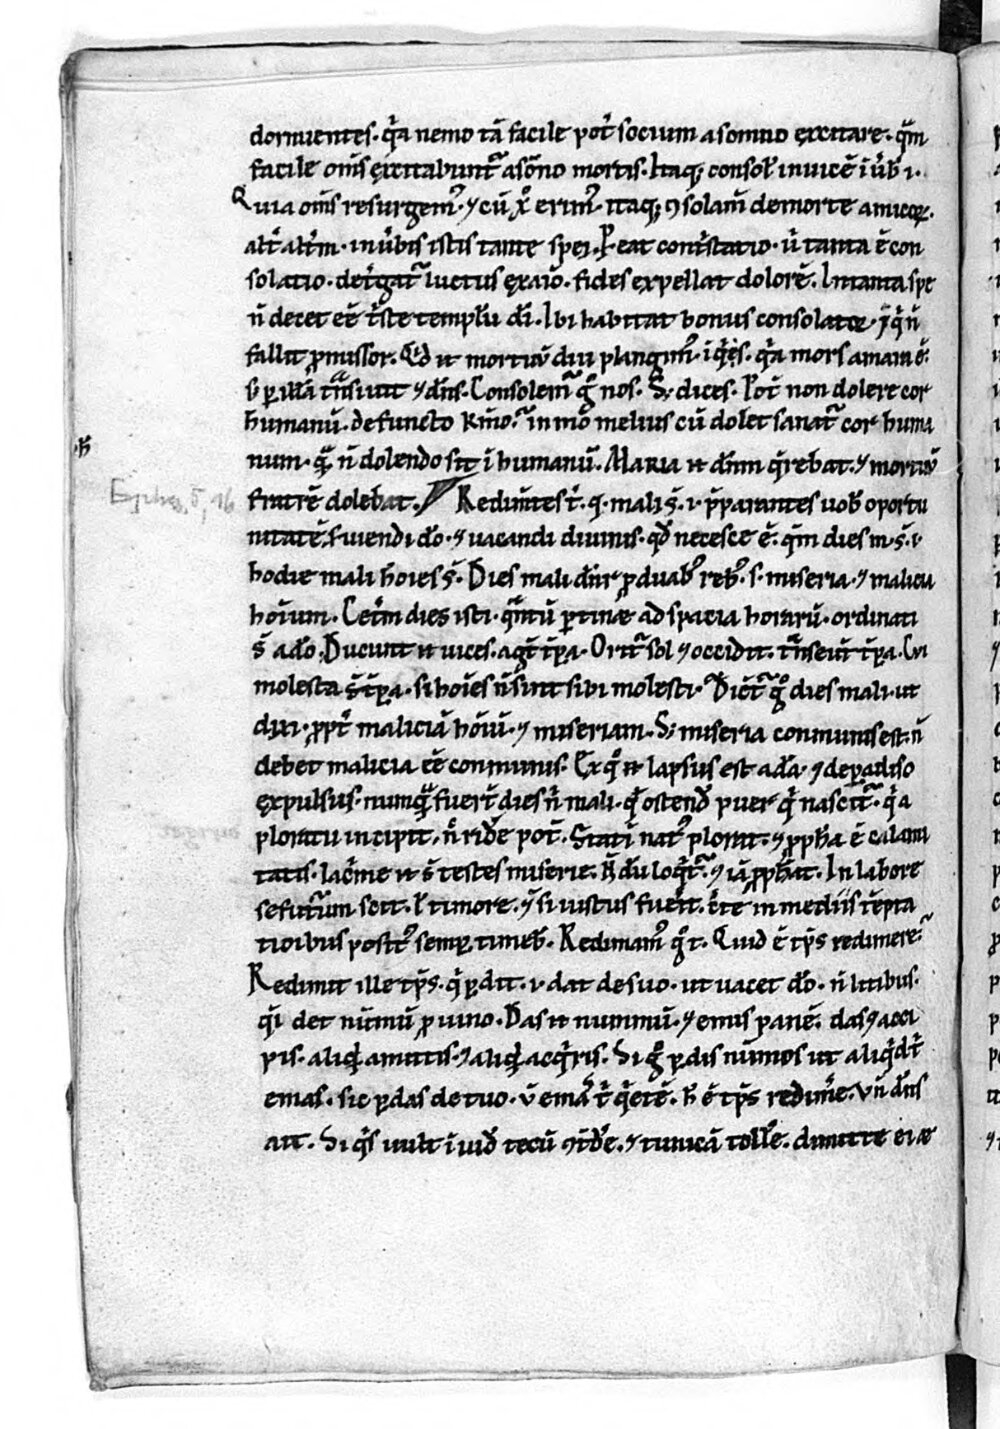 dormientes. q̄a nemo tā facile pot̄ socium a somno excitare. q̄m
facile om̄s excitabunt̄ a som̄o mortis. Itaq; consol̄ inuicē ī ūb̄ ı.
Quia om̄s resurgem᷒. ⁊ cū x̄ erim᷒. itaq; ꝯsolam̄ de morte amicoꝝ.
alt̄ alt̄m. in ūbis istis tante spei. Peat cont̄statio. ū tanta ē con
solatio. det̄gat̄ luctus ex aīo. fides expellat dolorē. In tanta spe
n̄ decet eē t̄ste templū dī. Ibi habitat bonus consolator. q̄ n̄
fallit ꝓmissor. Qd̄ mortuū diu plangim᷒. q̄a mors amara ē.
s̄ ꝑ illā t̄nsiuit ⁊ dn̄s. Consolem̄ ḡ nos. S; dices. Pot̄ non dolere cor
humanū. defuncto k̄mo. in mō melius cū dolet sanat̄ cor huma
num. q̄ n̄ dolendo fit ī humanū. Maria dn̄m q̄rebat. ⁊ mortuū
Ephes. 5, 16
fratrē dolebat. Redim̄tes t̄. q. mali s̄. ı. p̄parantes uob̄ oportu
nitatē. s̄uiendi dō. ⁊ uacandi diuinis. qd̄ necesse ē. q̄m dies m. s̄. ı.
hodie mali hōies s̄. Dies mali dn̄r ꝓ duab᷒ reb᷒. s. miseria. ⁊ malicia
hoīum. Cet̄m dies isti. q̄ntū ꝑtinæ ad spacia horarū. ordinati
s̄ a dō. Ducunt uices. agt̄ t̄pa. Orit̄ sol ⁊ occidit. t̄nseūt t̄pa. Cui
molesta s̄ t̄pa. si hoīes n̄ sint sibi molesti. Dict̄ ḡ dies mali. ut
dixi. ꝓpt̄ maliciā hoīū. ⁊ miseriam. S; miseria communis est. n̄
debet malicia eē communis. Ex q̊ lapsus est adā. ⁊ de paradiso
expulsus. numq̄ fuer̄t dies n̄ mali. q̄ ostend̄ puer q̄ nascit̄. q̄a
ploratu incipit. n̄ ridē e pot̄. Statī nat᷒ plorat. ⁊ ꝓph̄a ē calami
tatis. lac̄me s̄ testes miserie. N̄dū loq̄t̄. ⁊ iā ꝓph̄at. In labore
se futurum scit. ł timore. ⁊ si iustus fuerit. c̄te in mediis tēpta
tioibus posit᷒ semꝑ timeb̄. Redimam᷒ ḡ t. Quid ē tp̄s redimere?
Redimit ille tp̄s. q̄ ꝑdit. ı. dat de suo. ut uacet dō. n̄ litibus.
q̄i det nūmū ꝓ uino. Das nummū. ⁊ emis panē. das ⁊ acci
pis. aliq̄d amittis. ⁊ aliq̄d acq̄ris. Si ḡ ꝑdis nūmos ut aliq̄d
emas. sic ꝑdas de tuo. ē tp̄s redim̄e. Vn̄ dn̄s
ait. Si q̄s uult ī iud̄ tecū ꝯt̄dē. ⁊ tunicā tollē. dimitte ei æ